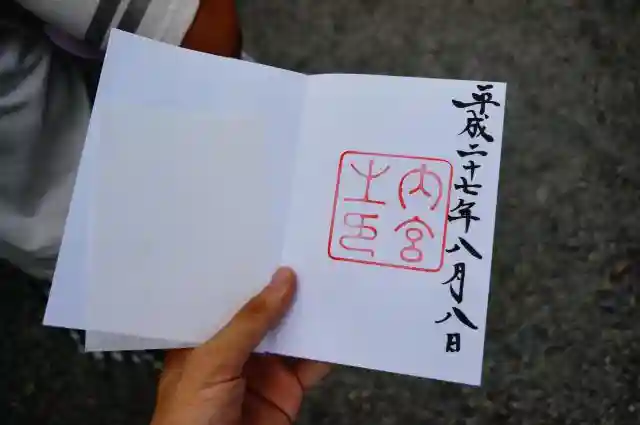 平成二十七年八月八日
内宮
之印